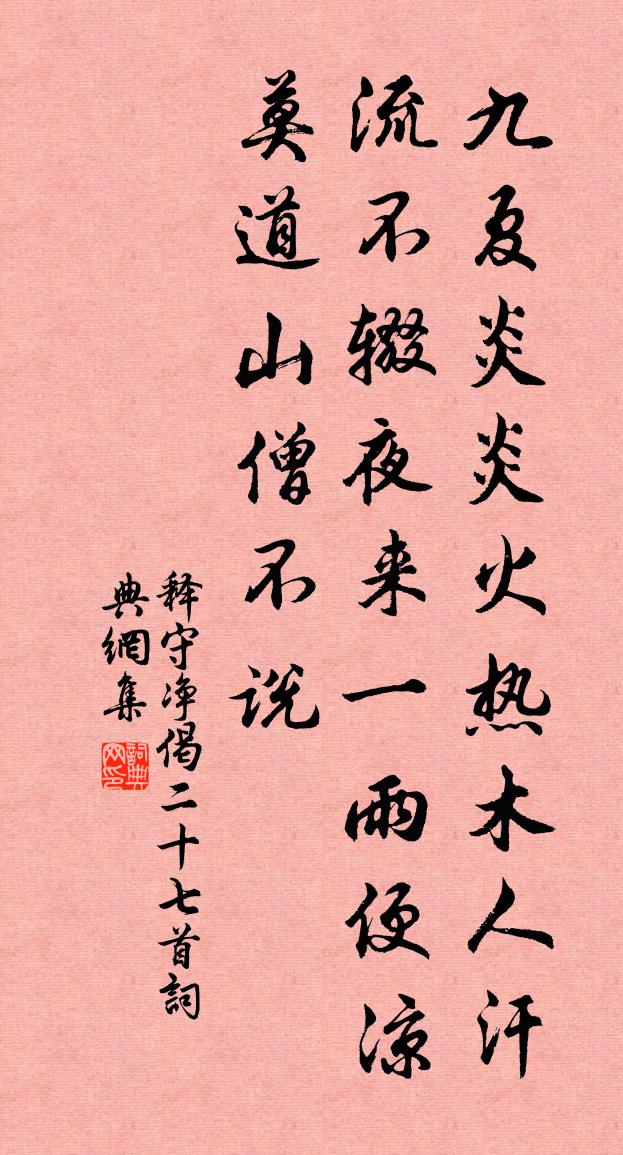 九夏炎炎火热木人汗
流不辍夜来一雨便凉
莫道山僧不说
释守净偈二十七首詞
典網集
詞典
网印